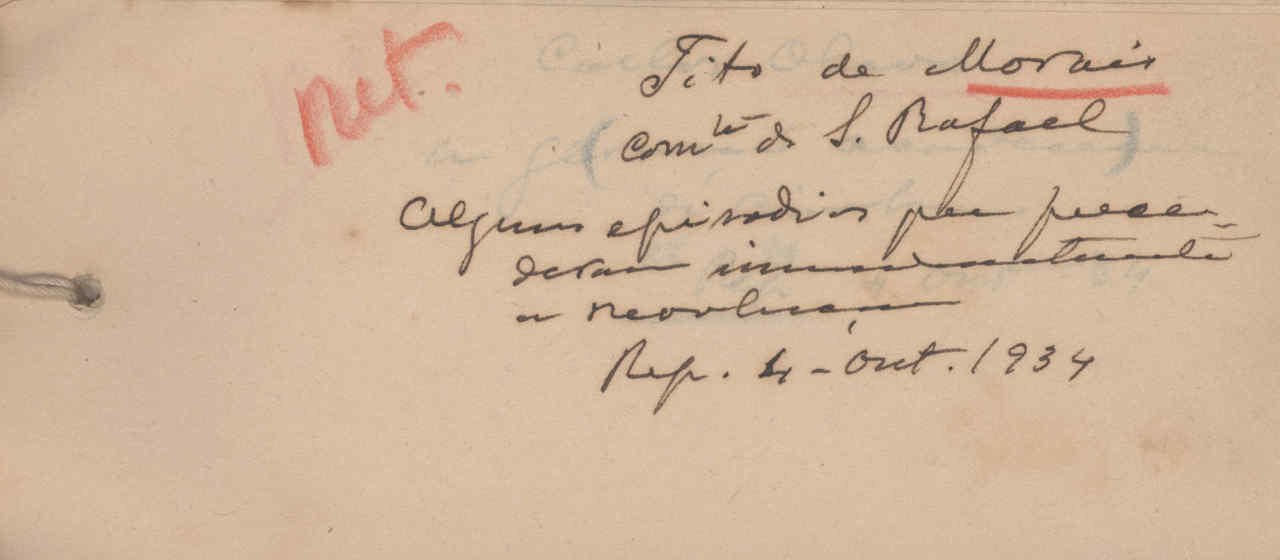 ret.
Tito de Morais
Com.te do S. Rafael
Alguns episodios que prece-
deram immediatamente
a revolução
Rep. 4-Out. 1934